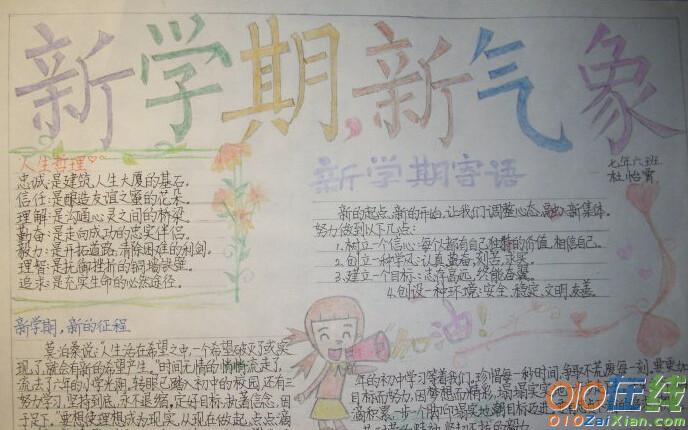 新学期,新气象
人生哲理
忠诚:是建筑人生大厦的基石。
信任:是酿造友谊之蜜的花朵。
理解:是沟通心灵之间的桥梁。
勤奋:是走向成功的忠实伴侣。
毅力:是开拓道路,清除困难的利剑。
理智:是抚御挫折的铜墙铁壁。
追求:是充实生命的必然途径。
新学期寄语
七年六班
杜怡霄
新的起点,新的开始,让我们调整心态,融入新集体。
努力做到以下几点:
1.树立一个信心:每个都有自己独特的价值,相信自己。
2.创立一种学风:认真,勤奋,刻苦,求实。
3.建立一个目标:志存高远,终能
4.创设一种环境:安全,稳定,文明,友善。
新学期,新的征程
莫泊桑说:"人生活在希望之中,一个希望破灭了或实
现了,就会有新的希望产生。"时间无情的悄悄流走了,
流去了六年的小学光阴,转眼已踏入初中的校园,还有三
努力学习,坚持到底,永不退缩,定好目标,执著信念,因
于足下。"要想使理想成为现实,从现在做起,点点滴
加油!
年的初中学习等着我们,珍惜每一种时间,争取不荒废每一刻,
目标而努力,因梦想而精彩,塌塌实实
滴积累,一步一个脚印塌实地朝目标迈进
010在线
010ZaiXian.com